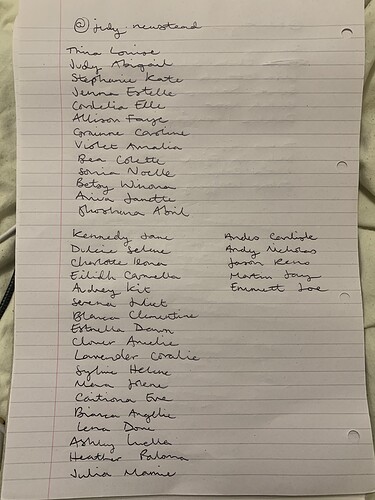 @judy.newstead
Tina Louise
Judy Abigail
Stephanie Kate
Jenna Estelle
Cordelia Elle
Allison Faye
Corinne Caroline
Violet Amalia
Bea Colette
Sonia Noelle
Betsy Winona
Aniva Janette
Shoshana Abril
Kennedy Jane
Dulcie Selene
Charlotte Ilona
Eilidh Carmella
Audrey Kit
Serena Juliet
Blanca Clementine
Estrella Dawn
Clover Amelie
Lavender Coralie
Sylvie Helene
Irene
Caitriona Eve
Bianca Angelie
Lena
Ashley Luella
Heather Paloma
Julia Mamie
Andes Carlisle
Andy Nicholas
Jason Reno
Martin Jay
Emmett Joe